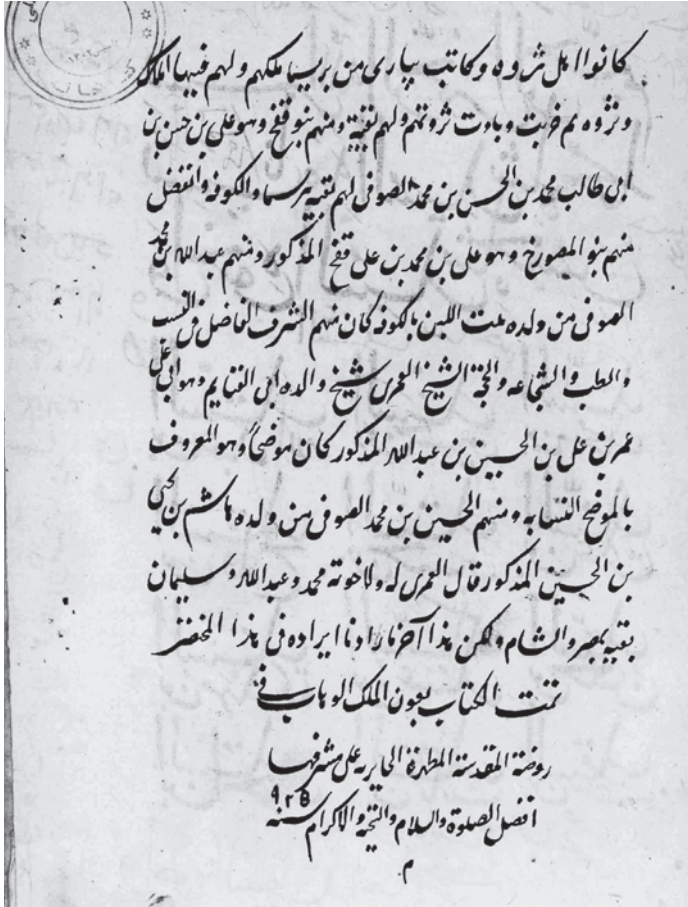 كانوا اهل ثروه وكاتب ببارى من بريسما ملكهم ولهم فيها املاك
وثروه ثم خربت وبادت ثروتهم ولهم بقية ومنهم بنو قفح وهو على بن حسن بن
ابى طالب محمد بن الحسن بن محمد الصوفى لهم بقيه ببرسما والكوفه وانفصل
منهم بنو المصورخ وهو على بن محمد بن على قفح المذكور ومنهم عبد الله بن محمد
الصوفى من ولده ملت اللبن بالكوفه كان منهم الشريف الفاضل فى النسب
والطب والشجاعه والحجة الشيخ العمرى شيخ والده ابى الغنايم وهو ابى على
عمر بن على بن الحسين بن عبد الله المذكور كان موضحا وهو المعروف
بالموضح النسابه ومنهم الحسين بن محمد الصوفى من ولده هاشم بن يحيى
بن الحسين المذكور قال العمرى له ولاخوته محمد وعبد الله وسليمان
بقيه بمصر والشام وليكن هذا آخر ما اردنا ايراده فى هذا المختصر
تمت الكتاب بعون الملك الوهاب فى
روضة المقدسة المطهرة الحايريه على مشرفها
افضل الصلوة والسلام والتحيه والاكرام سنه ٩٢٥
م